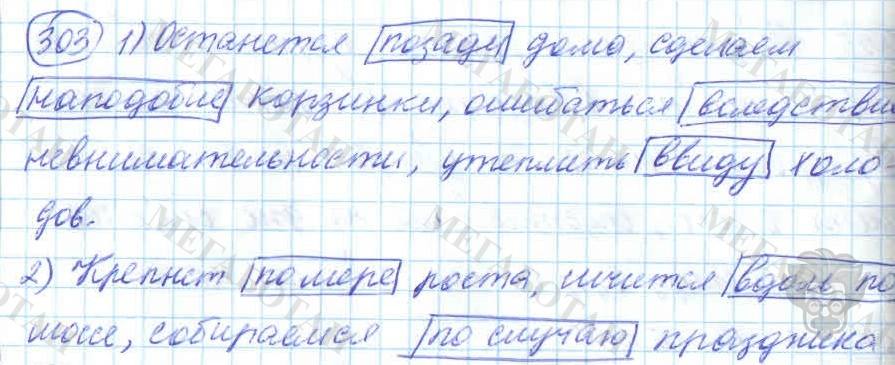 303 1) Останется позади дома, сделаем
наподобие корзинки, ошибаться вследствии
невнимательности, утеплить ввиду холо-
дов.
2) Крепнет по мере роста, мчится вдоль по
шоссе, собираемся по случаю праздника